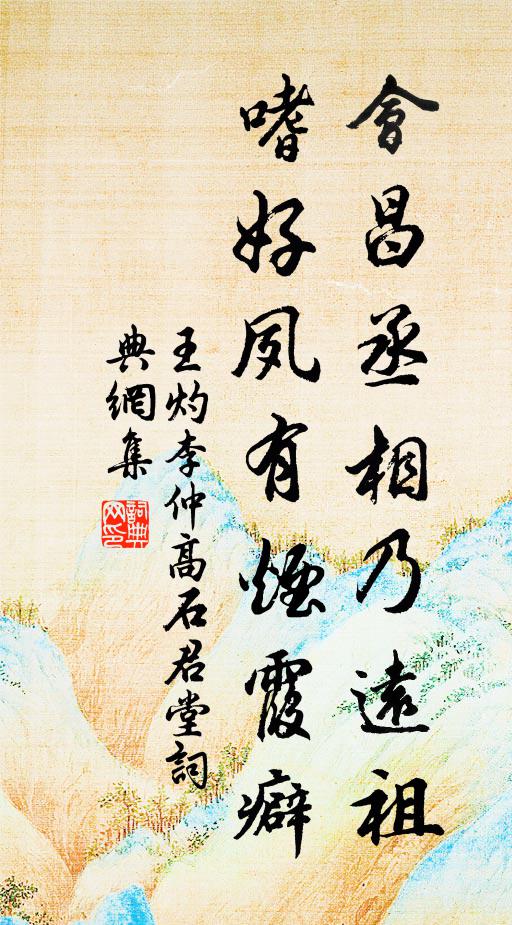 會昌丞相乃遠祖
嗜好夙有煙霞癖
王灼李仲高石君堂詞
典網集
詞典
网印